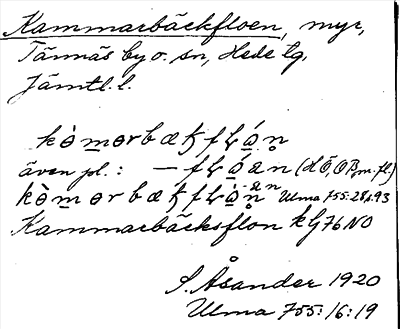 Kammarbäckfloen, myr,
Tännäs by o. sn, Hede tg.
Jämtl. l.
kòmɵrbækfʟón
även pl.: — fʟóan (HÖ, OB m. fl.)
kòmɵrbækfʟòn -an Ulma 755:28 s.93
Kammarbäcksflon kG 76 NO
S. Åsander 1920
Ulma 755:16:19